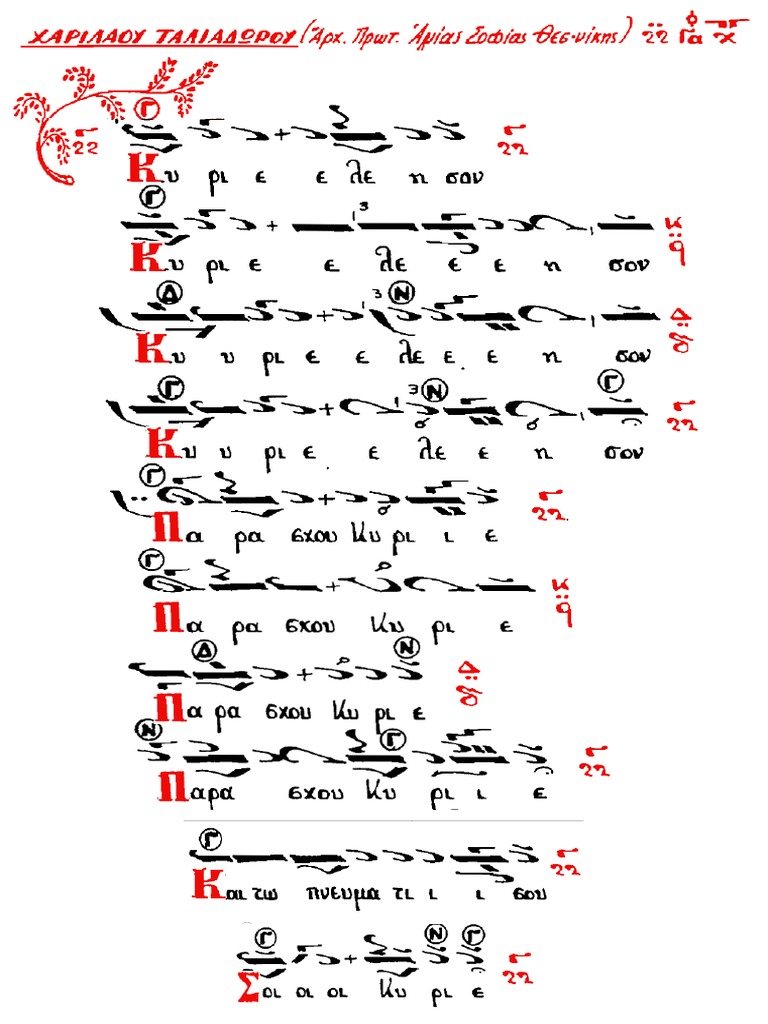 ΧΑΡΙΛΑΟΥ ΤΑΛΙΑΔΩΡΟΥ (Ἄρχ. Πρωτ. Ἁγίας Σοφίας Θεσ-νίκης) Γα
Γ
Κυ ρι ε ε λε η σον
Γ
Κυ ρι ε ε λε ε ε η σον
Δ Ν
Κυ υ ρι ε ε λε ε. ε η σον
Γ Ν Γ
Κυ υ ρι ε. ε λε ε η σον
Γ
Πα ρα σχου Κυ ρι ι ε
Γ
Πα ρα σχου Κυ ρι ε
Δ Ν
Πα ρα σχου Κυ ρι ε
Ν Γ
Παρα σχου Κυ ρι ι ε
Γ
Και τω πνευμα τι ι ι σου
Γ Ν Γ
Σοι οι οι Κυ ρι ε